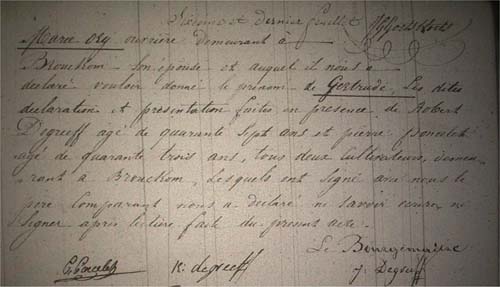 Sixième et dernier feuillet
Marie Ory ouvrière demeurant à
Brouckom son épouse et auquel il nous a
declaré vouloir donné le prénom de Gertrude. Les dites
declaration et présentation faites en presence de Robert
Degreeff agé de quarante sept ans et pierre Poncelet
agé de quarante trois ans, tous deux cultivateurs, demeu
rant à Brouckom, Lesquels ont signé avec nous le
père comparant nous a déclaré ne savoir écrire, ni
signer après lecture faite du present acte.
Le Bourgemaitre
P. Poncelet R. degreeff J. Degreeff